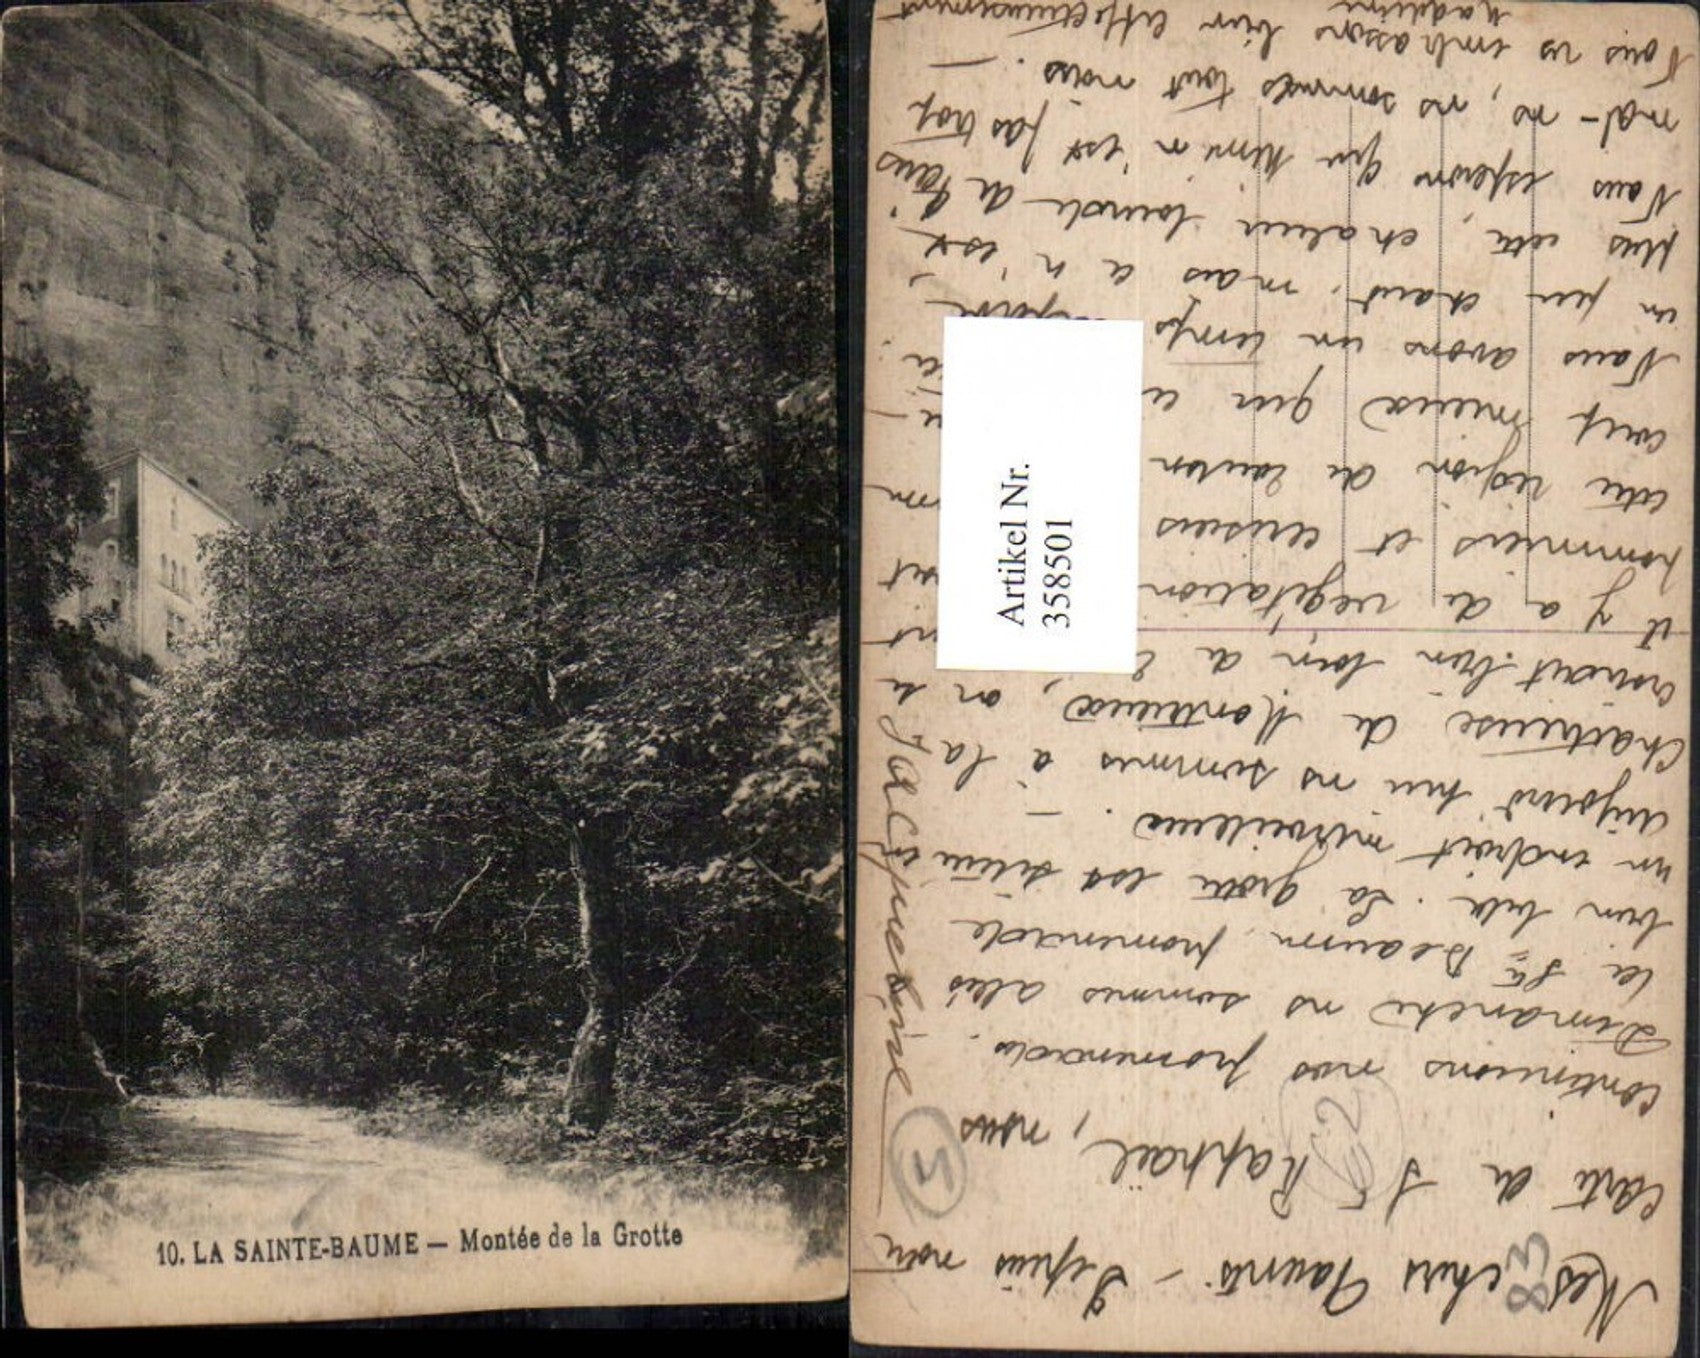 10. LA SAINTE-BAUME — Montée de la Grotte
Artikel Nr.
3585501
Mes chers Parents - Depuis nou
carte de St Raphaël, nous
continuons nos promenades.
Dimanche ns sommes allés
la Ste Beaume promenade
bien belle. La grotte est située
un endroit merveilleux. -
aujourd'hui ns sommes à la
Chartreuse de Montrieux, on se
croirait bien loin de
il y a de végétation
pommiers et cerisiers
cette région de Toulon
corp mieux que
Nous avons un temps
un peu chaud. mais ce n'est
plus cette chaleur lourde de Paris
Nous espérons que Rémi n'est pas trop
mal - ns, ns sommes tout
Nous vs embrassons bien affectueusement
Jacqueline
Madeleine
83
62
5